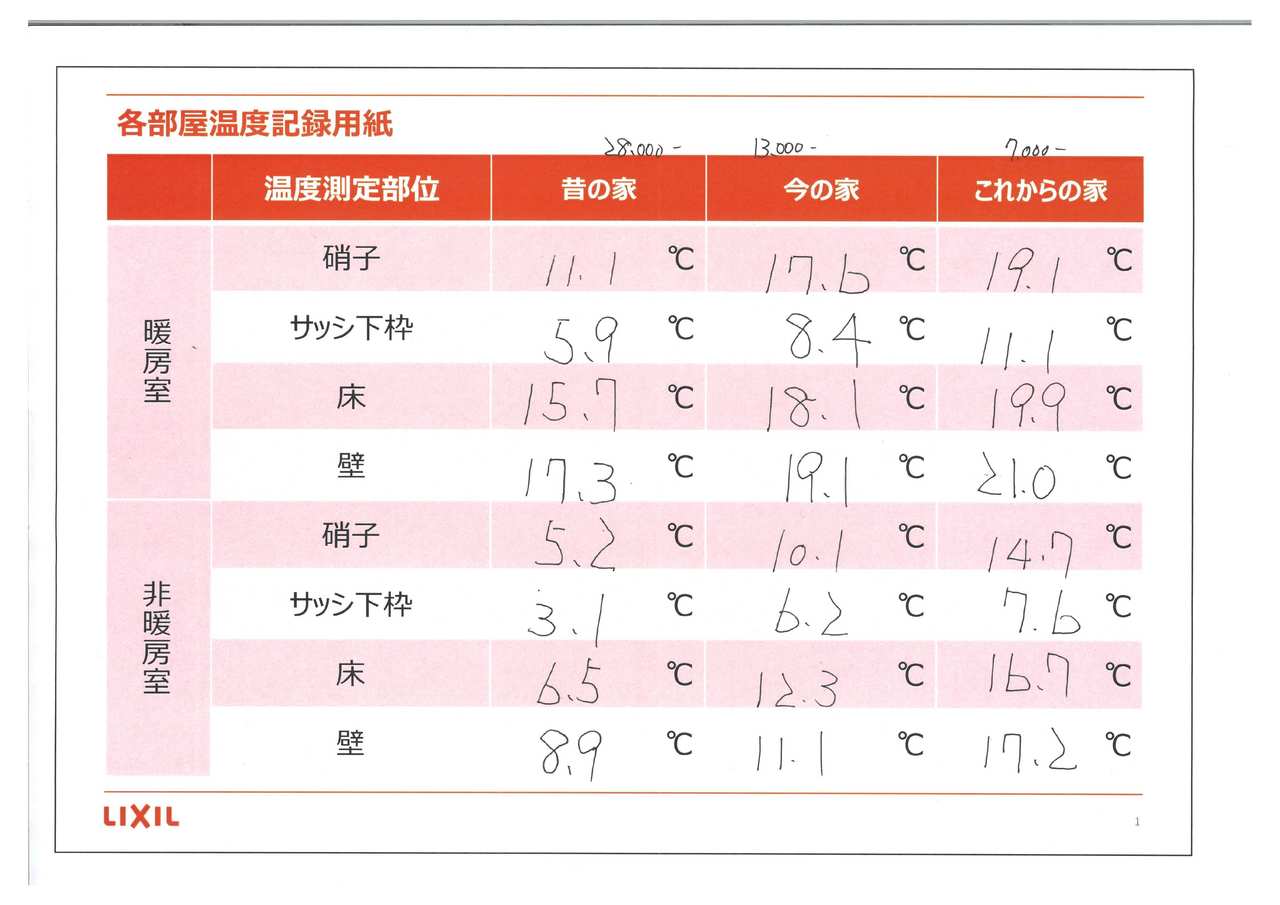 各部屋温度記録用紙
28,000- 13,000- 7,000-
温度測定部位 昔の家 今の家 これからの家
暖房室
硝子 11.1 ℃ 17.6 ℃ 19.1 ℃
サッシ下枠 5.9 ℃ 8.4 ℃ 11.1 ℃
床 15.7 ℃ 18.1 ℃ 19.9 ℃
壁 17.3 ℃ 19.1 ℃ 21.0 ℃
非暖房室
硝子 5.2 ℃ 10.1 ℃ 14.7 ℃
サッシ下枠 3.1 ℃ 6.2 ℃ 7.6 ℃
床 6.5 ℃ 12.3 ℃ 16.7 ℃
壁 8.9 ℃ 11.1 ℃ 17.2 ℃
LIXIL
1